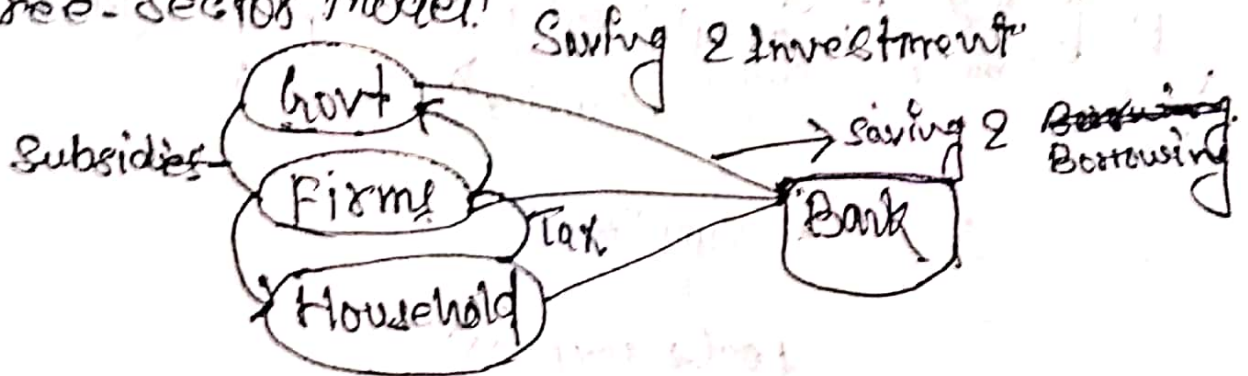 ree-sector model:
Saving & Investment
Govt
Subsidies
Firms
Tax
Household
Saving & Borrowing
Bank